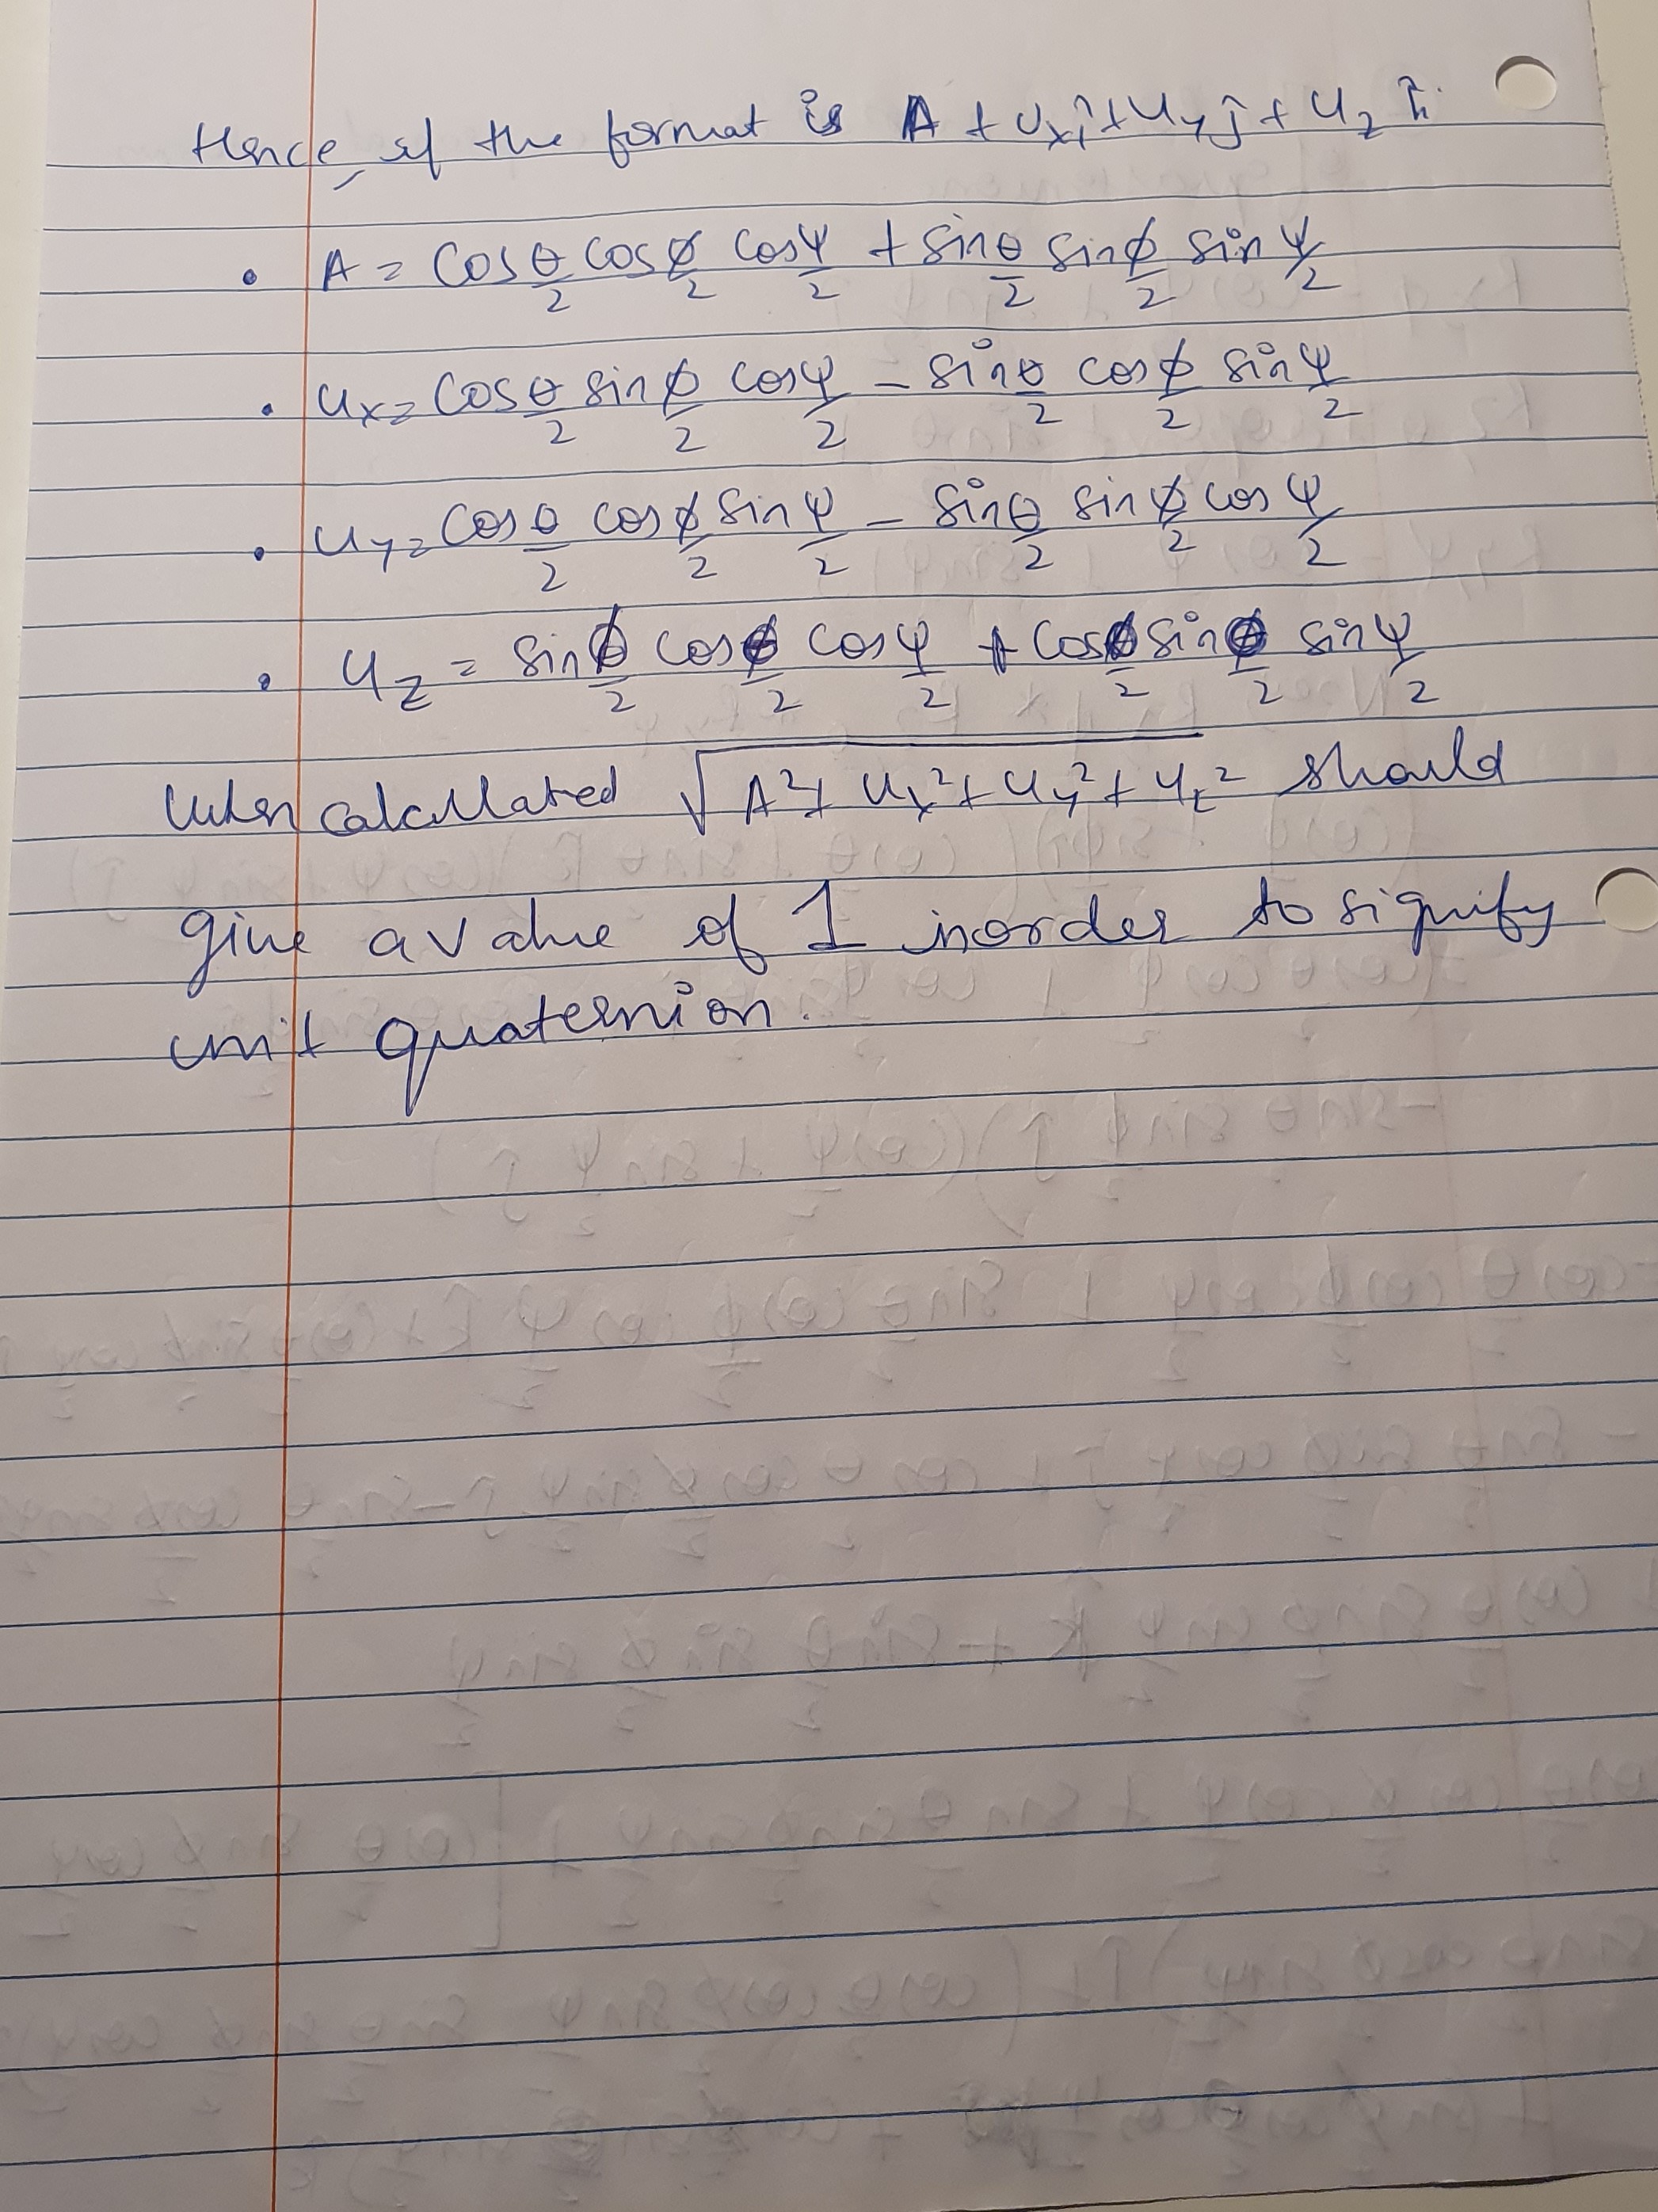 Hence, if the format is A + Uxî + Uyĵ + Uz k̂.
• A = cos θ/2 cos ϕ/2 cos ψ/2 + sin θ/2 sin ϕ/2 sin ψ/2
• Ux = cos θ/2 sin ϕ/2 cos ψ/2 - sin θ/2 cos ϕ/2 sin ψ/2
• Uy = cos θ/2 cos ϕ/2 sin ψ/2 - sin θ/2 sin ϕ/2 cos ψ/2
• Uz = sin /2 cos /2 cos ψ/2 + cos /2 sin /2 sin ψ/2
When calculated √A²+ Ux²+ Uy²+ Uz² should
give a value of 1 inorder to signify
unit quaternion.